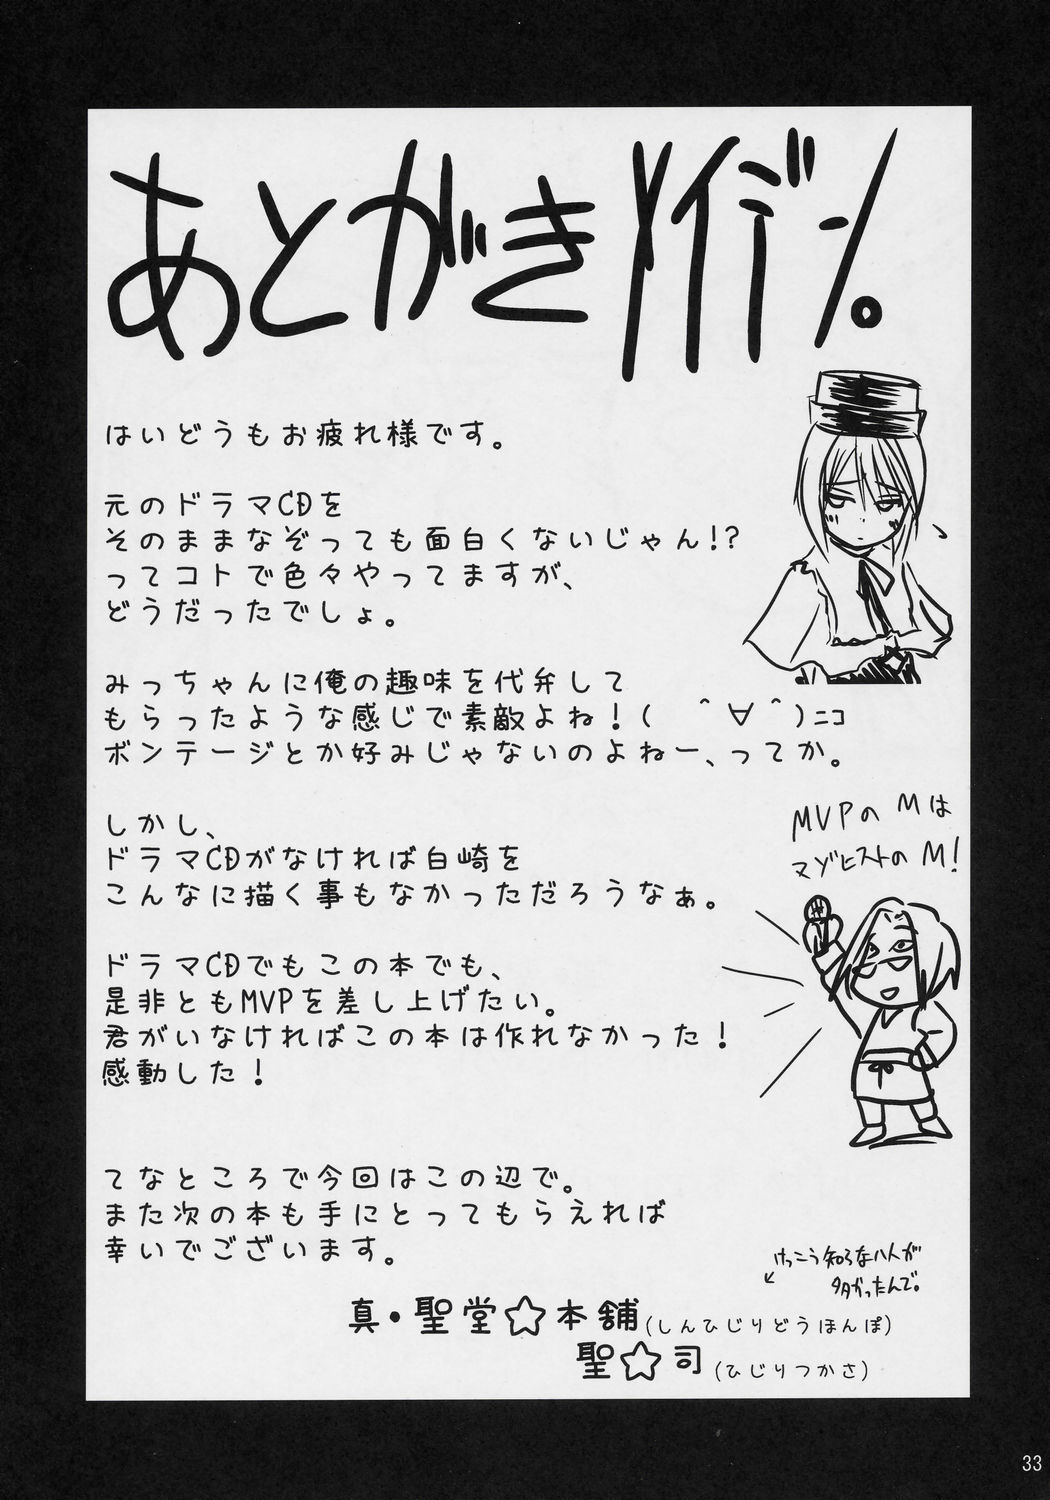 あとがきメイデン。
はいどうもお疲れ様です。
元のドラマCDを
そのままなぞっても面白くないじゃん!?
ってコトで色々やってますが、
どうだったでしょ。
みっちゃんに俺の趣味を代弁して
もらったような感じで素敵よね!( ＾∀＾)ﾆｺ
ボンテージとか好みじゃないのよねー、ってか。
しかし、
ドラマCDがなければ白崎を
こんなに描く事もなかっただろうなぁ。
MVPのMは
マゾヒストのM!
ドラマCDでもこの本でも、
是非ともMVPを差し上げたい。
君がいなければこの本は作れなかった!
感動した!
てなところで今回はこの辺で。
また次の本も手にとってもらえれば
幸いでございます。
けっこう知らない人が
多かったんで。
真・聖堂☆本舗(しんひじりどうほんぽ)
聖☆司(ひじりつかさ)
33